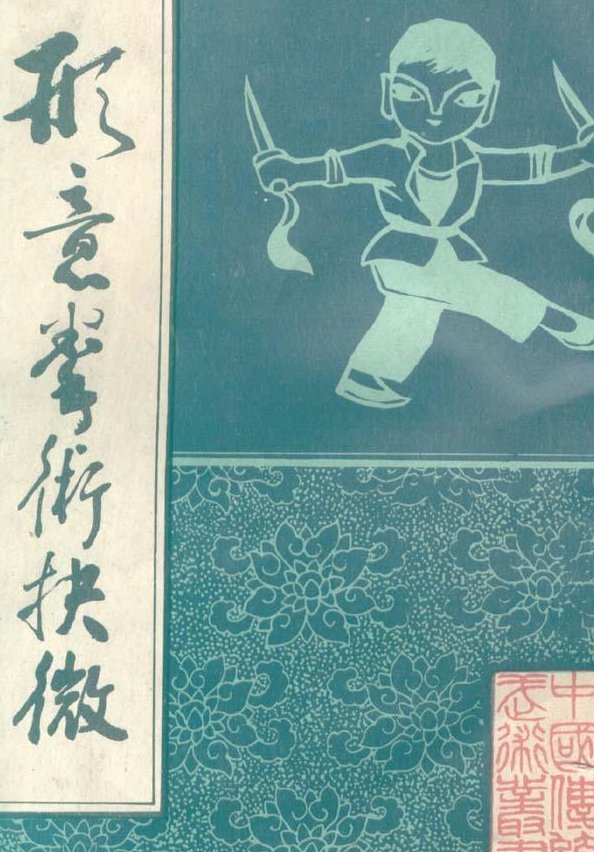 形意拳術抉微
中國傳統
武術叢書